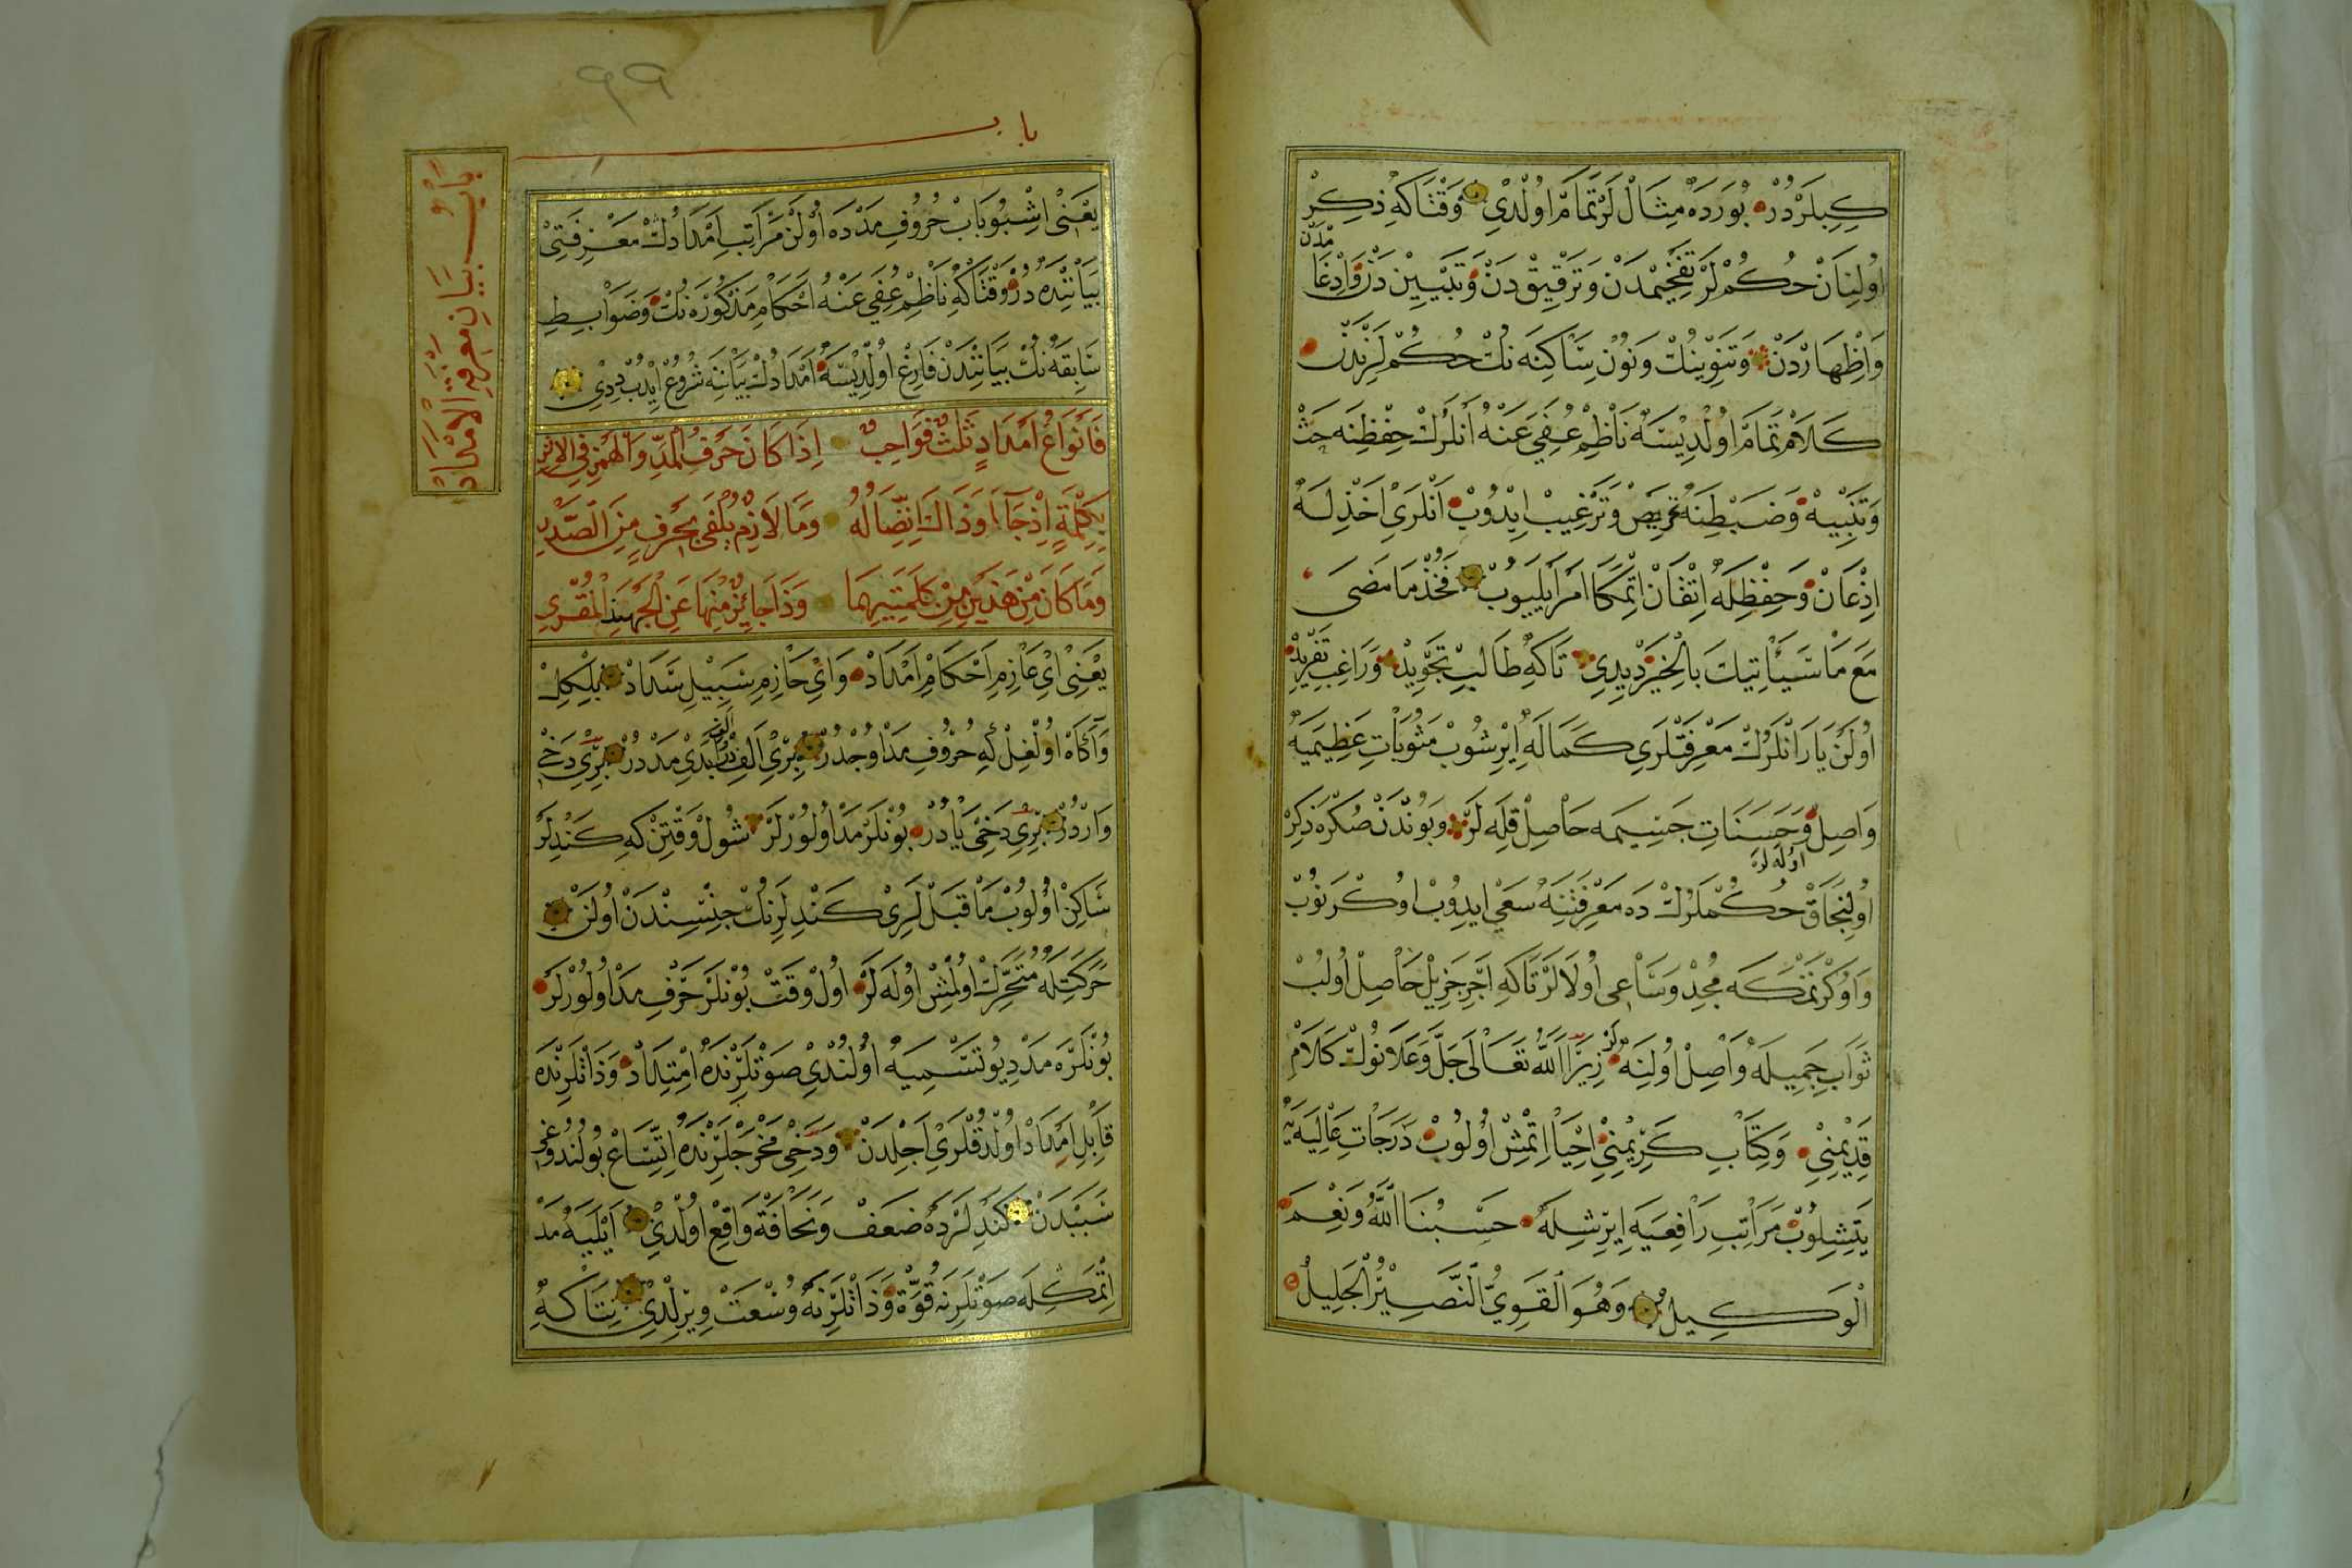 كبيلردر بورده مثاللر تمام اولدى وقتاكه ذكر
اولنان حكملر تفخيمدن وترقيقدن وتبييندن وادغا
مدن
واظهاردن وتنوينك ونون ساكنه نك حكملرندن
كلام تمام اولديسه ناظم عفي عنه انلرك حفظنه حث
وتنبيه وضبطنه تحريض وترغيب ايدوب انلرى اخذله
اذعان وحفظله اتقان اتمكا امر ايليوب فخذ ما مضى
مع ما سيأتيك بالخير ديدى تاكه طالب تجويد وراغب تفريد
اولن يارانلرك معرفتلرى كماله ايرشوب مثوبات عظيميه
واصل وحسنات جسيمه حاصل قله لر وبوندن صكره ذكر
اوله لر
اولنجاق حكملرك ده معرفتنه سعي ايدوب اوكرنوب
واوكرتمكه مجد وساعى اولالر تاكه اجر جزيل حاصل اولب
ثواب جميله واصل اولنه لر زيرا الله تعالى جل وعلانوك كلام
قديمنى وكتاب كريمنى احيا اتمش اولوب درجات عاليه يه
يتيشلوب مراتب رافعيه ايرشله حسبنا الله ونعم
الوكيل وهو القوي النصير الجليل
٩٩
باب
باب بيان معرفة الامداد
يعنى اشبو باب حروف مدده اولن مراتب امدادك معرفتى
بياننده در وقتاكه ناظم عفي عنه احكام مذكوره نك وضوابط
سابقه نك بيانندن فارغ اولديسه امدادك بياننه شروع ايدب ديدى
فانواع امداد ثلث فواجب اذا كان حرف المد والهمز في الاثر
بكلمة اذ جاآ وذاك اتصاله وما لازم يلفى بحرف من الصدر
وما كان من هذين من كلمتيهما وذا جائز منها عن الجهبذ المقرى
يعنى اى عازم احكام امداد واى حازم سبيل سداد بلكل
وآكاه اولغل كه حروف مد اوجدر برى الفدر الف ابدى مددر برى دخى
واودر برى دخى يادر بونلر مد اولورلر شول وقتن كه كندلر
ساكن اولوب ما قبللرى كندلرنك جنسندن اولن
حركتله متحرك اولمش اوله لر اول وقت بونلر حرف مد اولورلر
بونلره مد ديو تسميه اولندى صوتلرنده امتداد وذاتلرنده
قابل امداد اولدقلرى اجلدن ودخى مخرجلرنده اتساع بولندوغى
سببدن كندلرده ضعف ونحافة واقع اولدى ايليه مد
اتمكله صوتلرنه قوة وذاتلرنه وسعت ويرلدى نتاكه